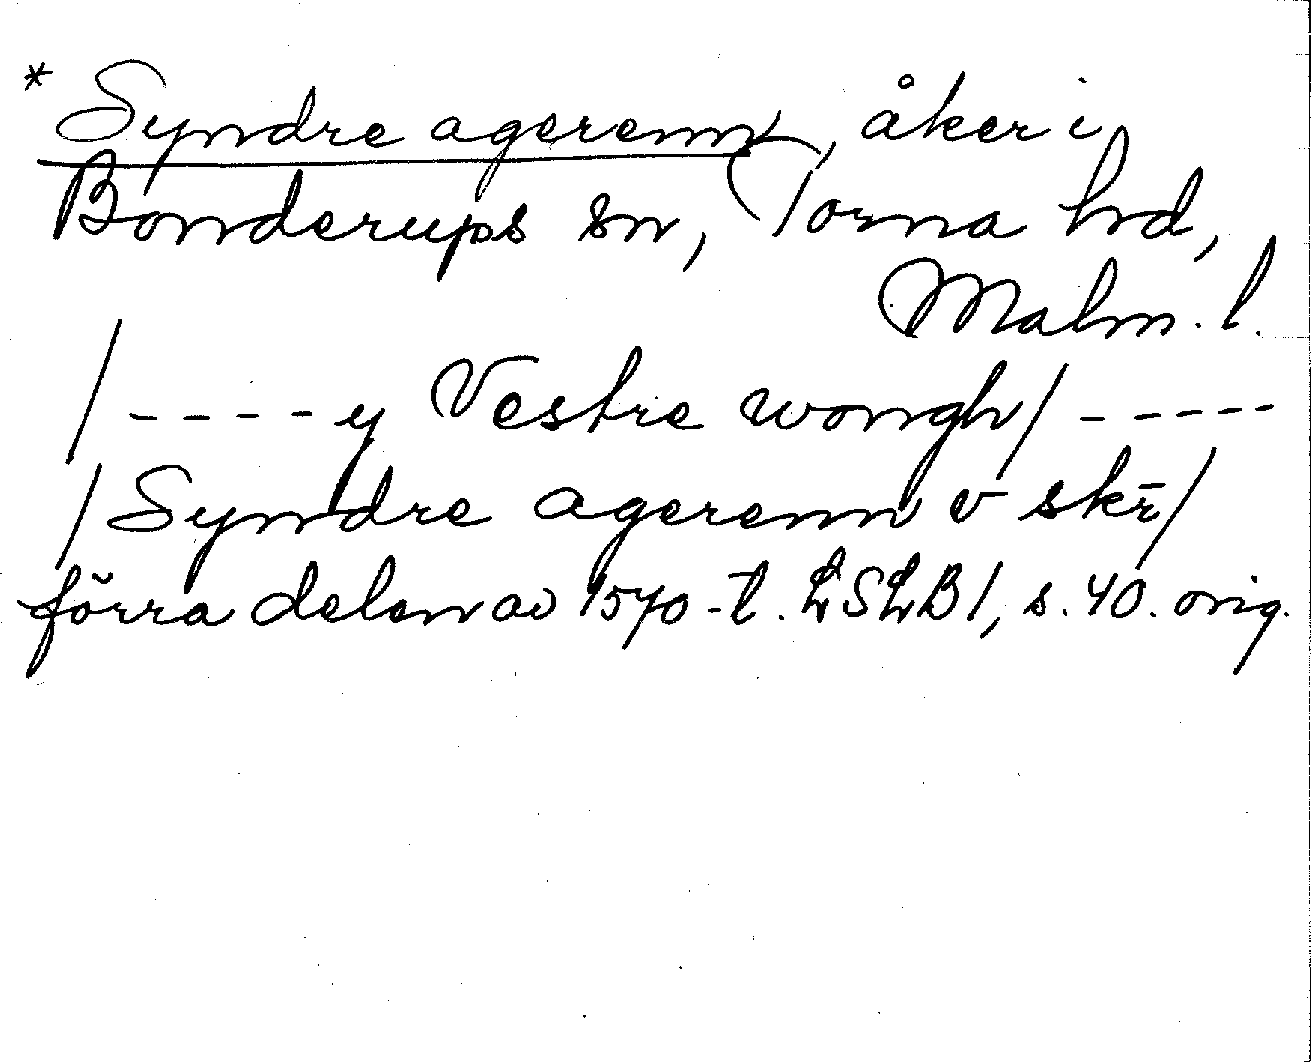 * Syndre agerenn, åker i
Bonderups sn, Torna hd,
Malm. l.
/ - - - - y Vestre wongh / - - - - -
/ Syndre agerenn v skr̄ /
förra delen av 1570-t. LSLB 1, s. 40. orig.